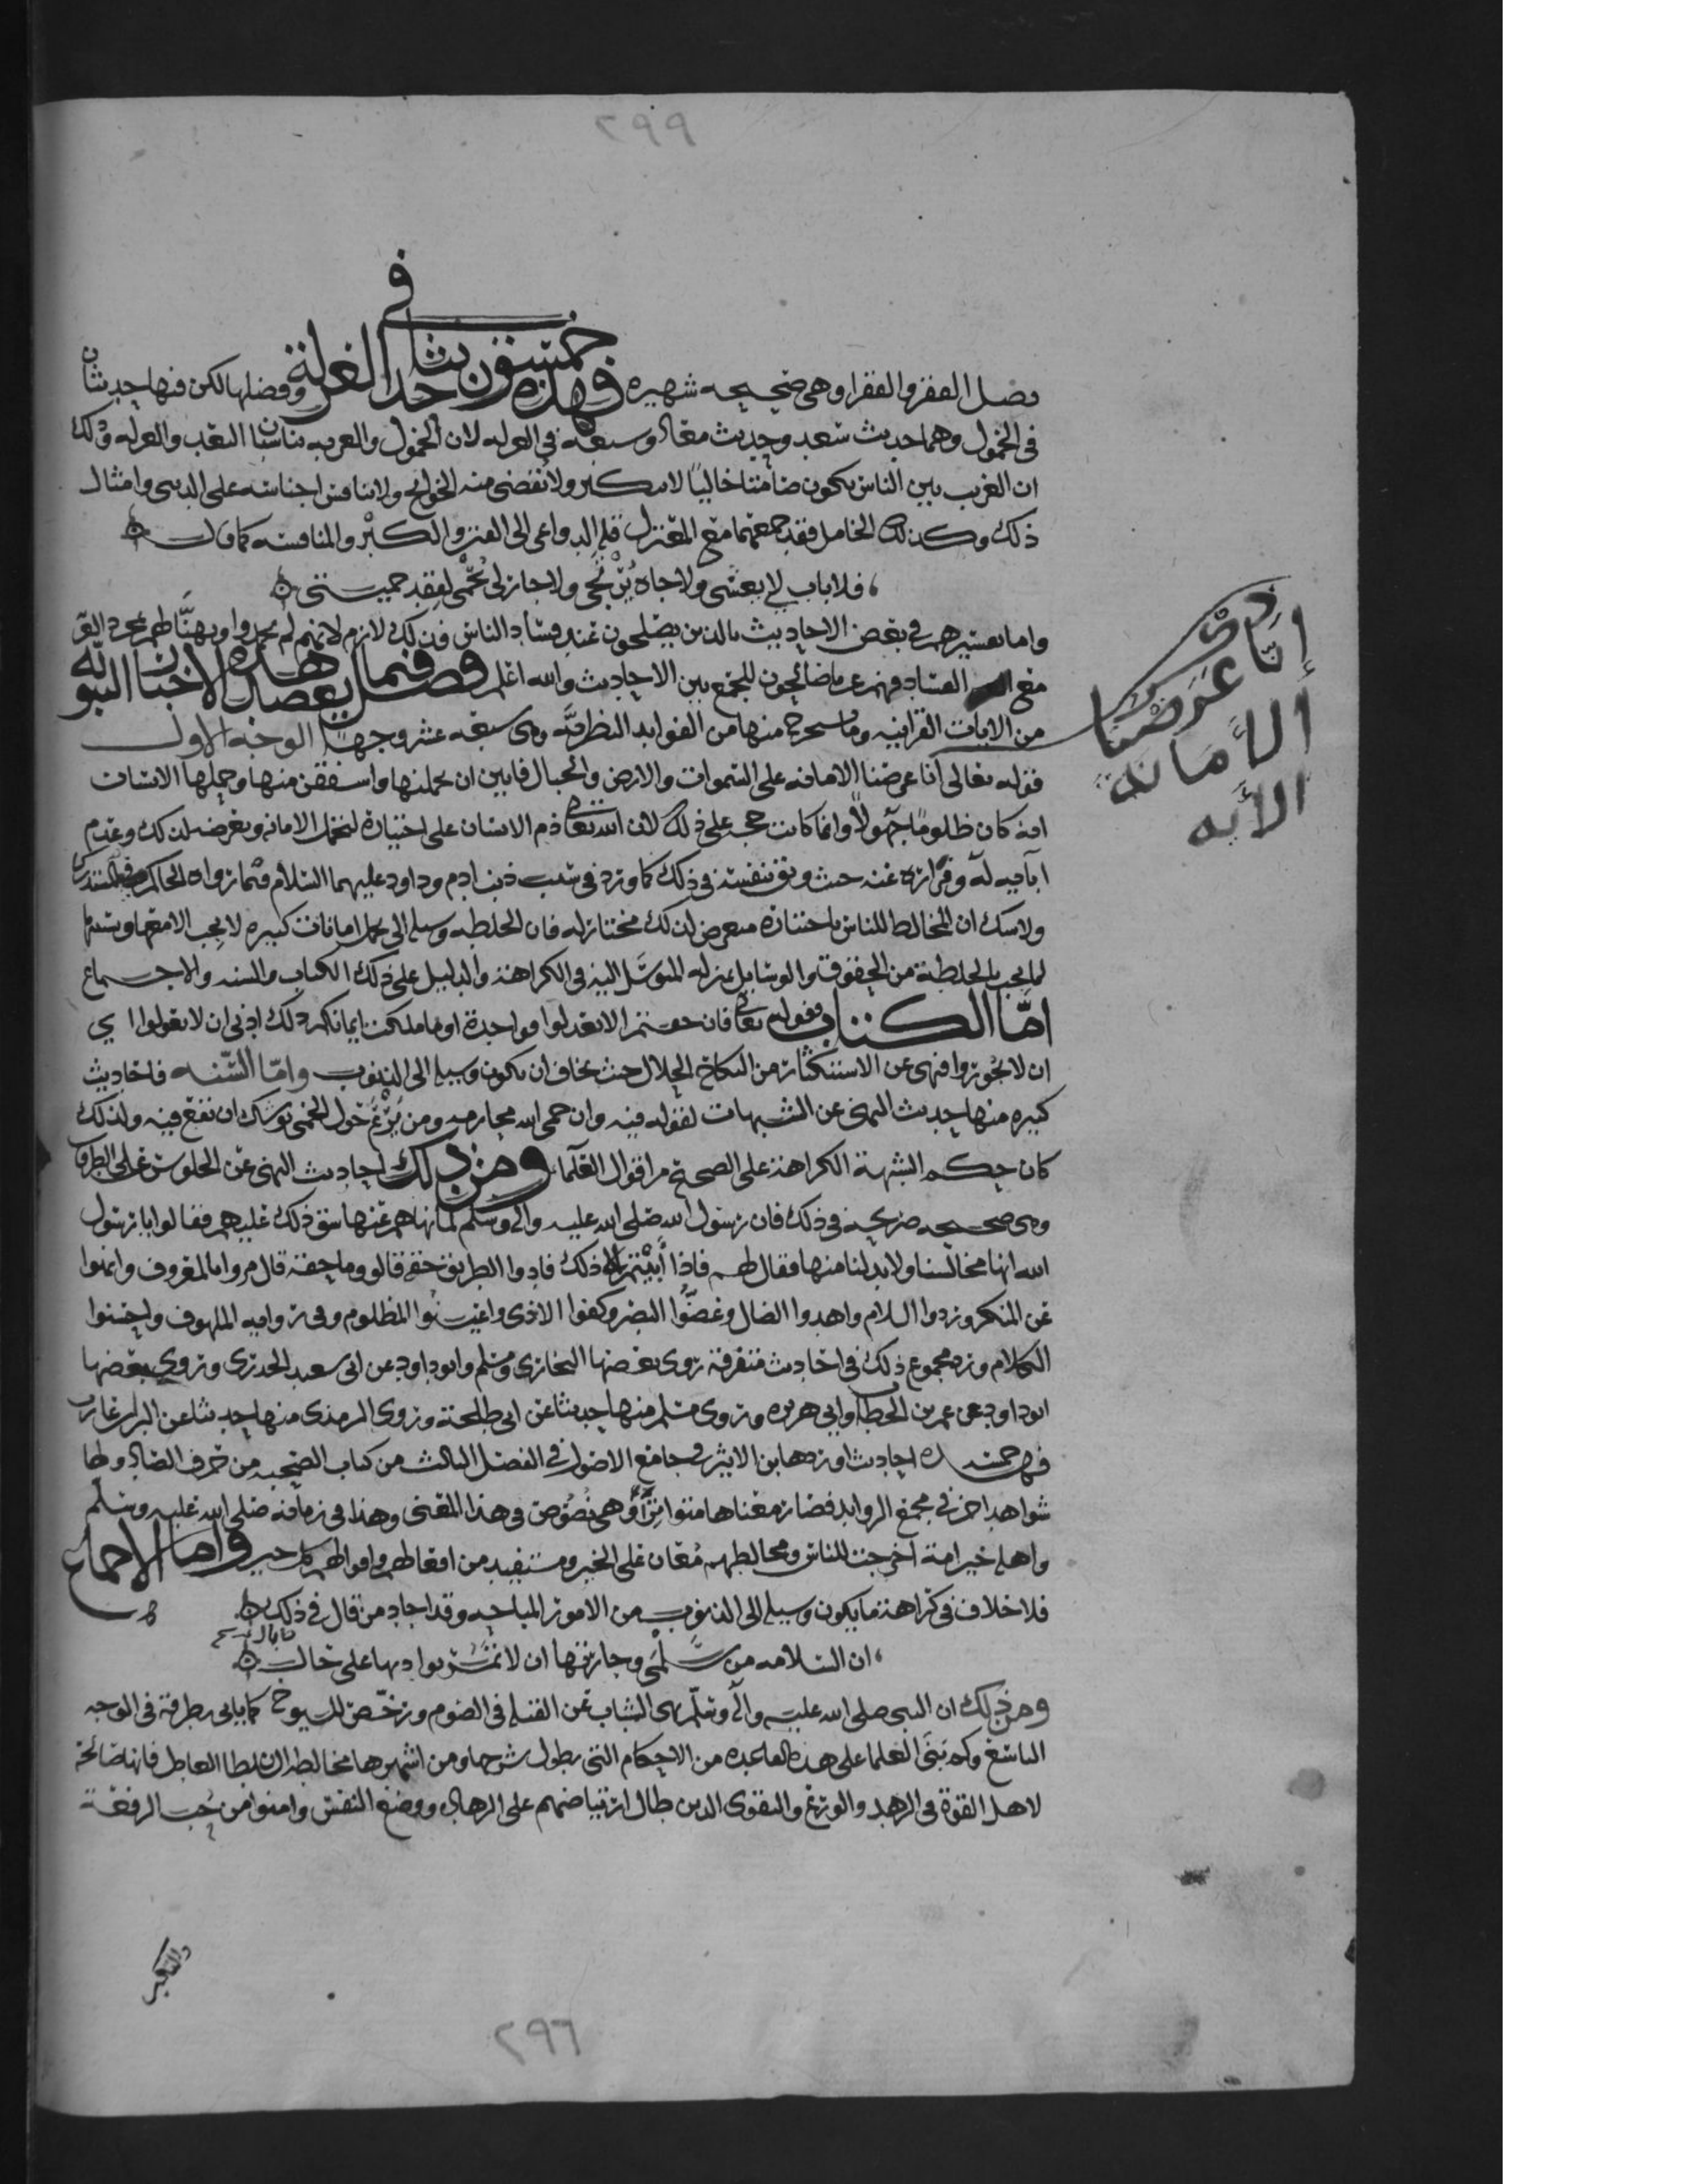 ٢٩٩
فضل الفقر والفقرا وهي صحيحه شهيره فهذه خمسون حديثا في العزلة وفضلها لكن فيها حديثان
في الخمول وهما حديث سعد وحديث معاذ وسبعه في العزله لان الخمول والغربه يناسبان البعد والعزله وذلك
ان الغريب بين الناس يكون صامتا خاليا لا يتكبر ولا تقضى منه الحوايج ولا ينافس اجناسه على الدنيى وامثال
ذلك وكذلك الخامل فقد جمعتهما مع المعتزل قلة الدواعى الى العز والكبر والمنافسه كما قال
فلا باب لي يغشى ولا جاه يرتجى ولا جار لي يحمى لفقد حميتى
واما تفسيرهم في بعض الاحاديث بالذين يصلحون عند فساد الناس فذلك لازم لانهم لم يحمدوا ويهنا لهم بمجرد التفرد
مع الفساد فهم غربا صالحون للجمع بين الاحاديث والله اعلم فصل فيما يعضد هذه الاخبار النبويه
من الايات القرانيه وما يستخرج منها من الفوايد النظريه وهي سبعه عشر وجها الوجه الاول
قوله تعالى انا عرضنا الامانه على السموات والارض والجبال فابين ان يحملنها واشفقن منها وحملها الانسان
انه كان ظلوما جهولا وانما كانت حجه على ذلك لان الله تعالى ذم الانسان على اختياره لتحمل الامانه وتعرضه لذلك وعدم
ابآيه له وفراره عنه حيث وثق بنفسه في ذلك كما ورد في سبب ذنب ادم وداود عليهما السلام فيما رواه الحاكم في المستدرك
ولا شك ان المخالط للناس باختياره متعرض لذلك مختار له فان الخلطه وسيله الى تحمل امانات كبيره لا يجب الا معها وبسببها
لما يجب بالخلطة من الحقوق والوسايل بمنزله المتوسل اليه في الكراهة والدليل على ذلك الكتاب والسنه والاجماع
اما الكتاب فقوله تعالى فان خفتم الا تعدلوا فواحدة او ما ملكت ايمانكم ذلك ادنى ان لا تعولوا اي
ان لا تجوروا فنهى عن الاستكثار من النكاح الحلال حيث يخاف ان يكون وسيله الى الذنوب واما السنه فاحاديث
كثيره منها حديث النهى عن الشبهات لقوله فيه وان حمى الله محارمه ومن يرتع حول الحمى يوشك ان يقع فيه ولذلك
كان حكم الشبهة الكراهة على الصحيح من اقوال العلما ومن ذلك احاديث النهى عن الجلوس على الطرق
وهي صحيحه صريحه في ذلك فان رسول الله صلى الله عليه واله وسلم لما نهاهم عنها شق ذلك عليهم فقالوا يا رسول
الله انها مجالسنا ولا بد لنا منها فقال لهم فاذا ابيتم الا ذلك فادوا الطريق حقه قالوا وما حقه قال مروا بالمعروف وانهوا
عن المنكر وردوا السلام واهدوا الضال وغضوا البصر وكفوا الاذى واغيثوا المظلوم وفي روايه الملهوف واحسنوا
الكلام ورد مجموع ذلك في احاديث متفرقة روى بعضها البخاري ومسلم وابو داود عن ابى سعيد الخدري وروى بعضها
ابو داود عن عمر بن الخطاب وابي هريره وروى مسلم منها حديثا عن ابى طلحة وروى الترمذى منها حديثا عن البرا بن عازب
فهى خمسه احاديث اوردها ابن الاثير في جامع الاصول في الفصل الثالث من كتاب الصحبه من حرف الصاد ولها
شواهد اخر في مجمع الزوايد فصار معناها متواترا وهي نصوص في هذا المعنى وهذا في زمانه صلى الله عليه وسلم
واهله خير امة اخرجت للناس ومخالطهم معان على الخير ومستفيد من افعالهم واقوالهم كل خير واما الاجماع
فلا خلاف في كراهة ما يكون وسيله الى الذنوب من الامور المباحه وقد اجاد من قال في ذلك
ان السلامه من سلمى وجارتها ان لا تمر بواديها على حال
ومن ذلك ان النبى صلى الله عليه واله وسلم نهى الشباب عن القبله في الصوم ورخص للشيوخ كما ياتى بطرقه في الوجه
التاسع وكم بنى العلما على هذه القاعده من الاحكام التى يطول شرحها ومن اشهرها مخالطه السلطان العادل فانها صالحة
لاهل القوة في الزهد والورع والتقوى الذين طال ارتياضهم على الزهاده ووضع النفس وامنوا من حب الرفعة
والتكبر
٢٩٦
إنا عرضنا
الأمانة
الآيه